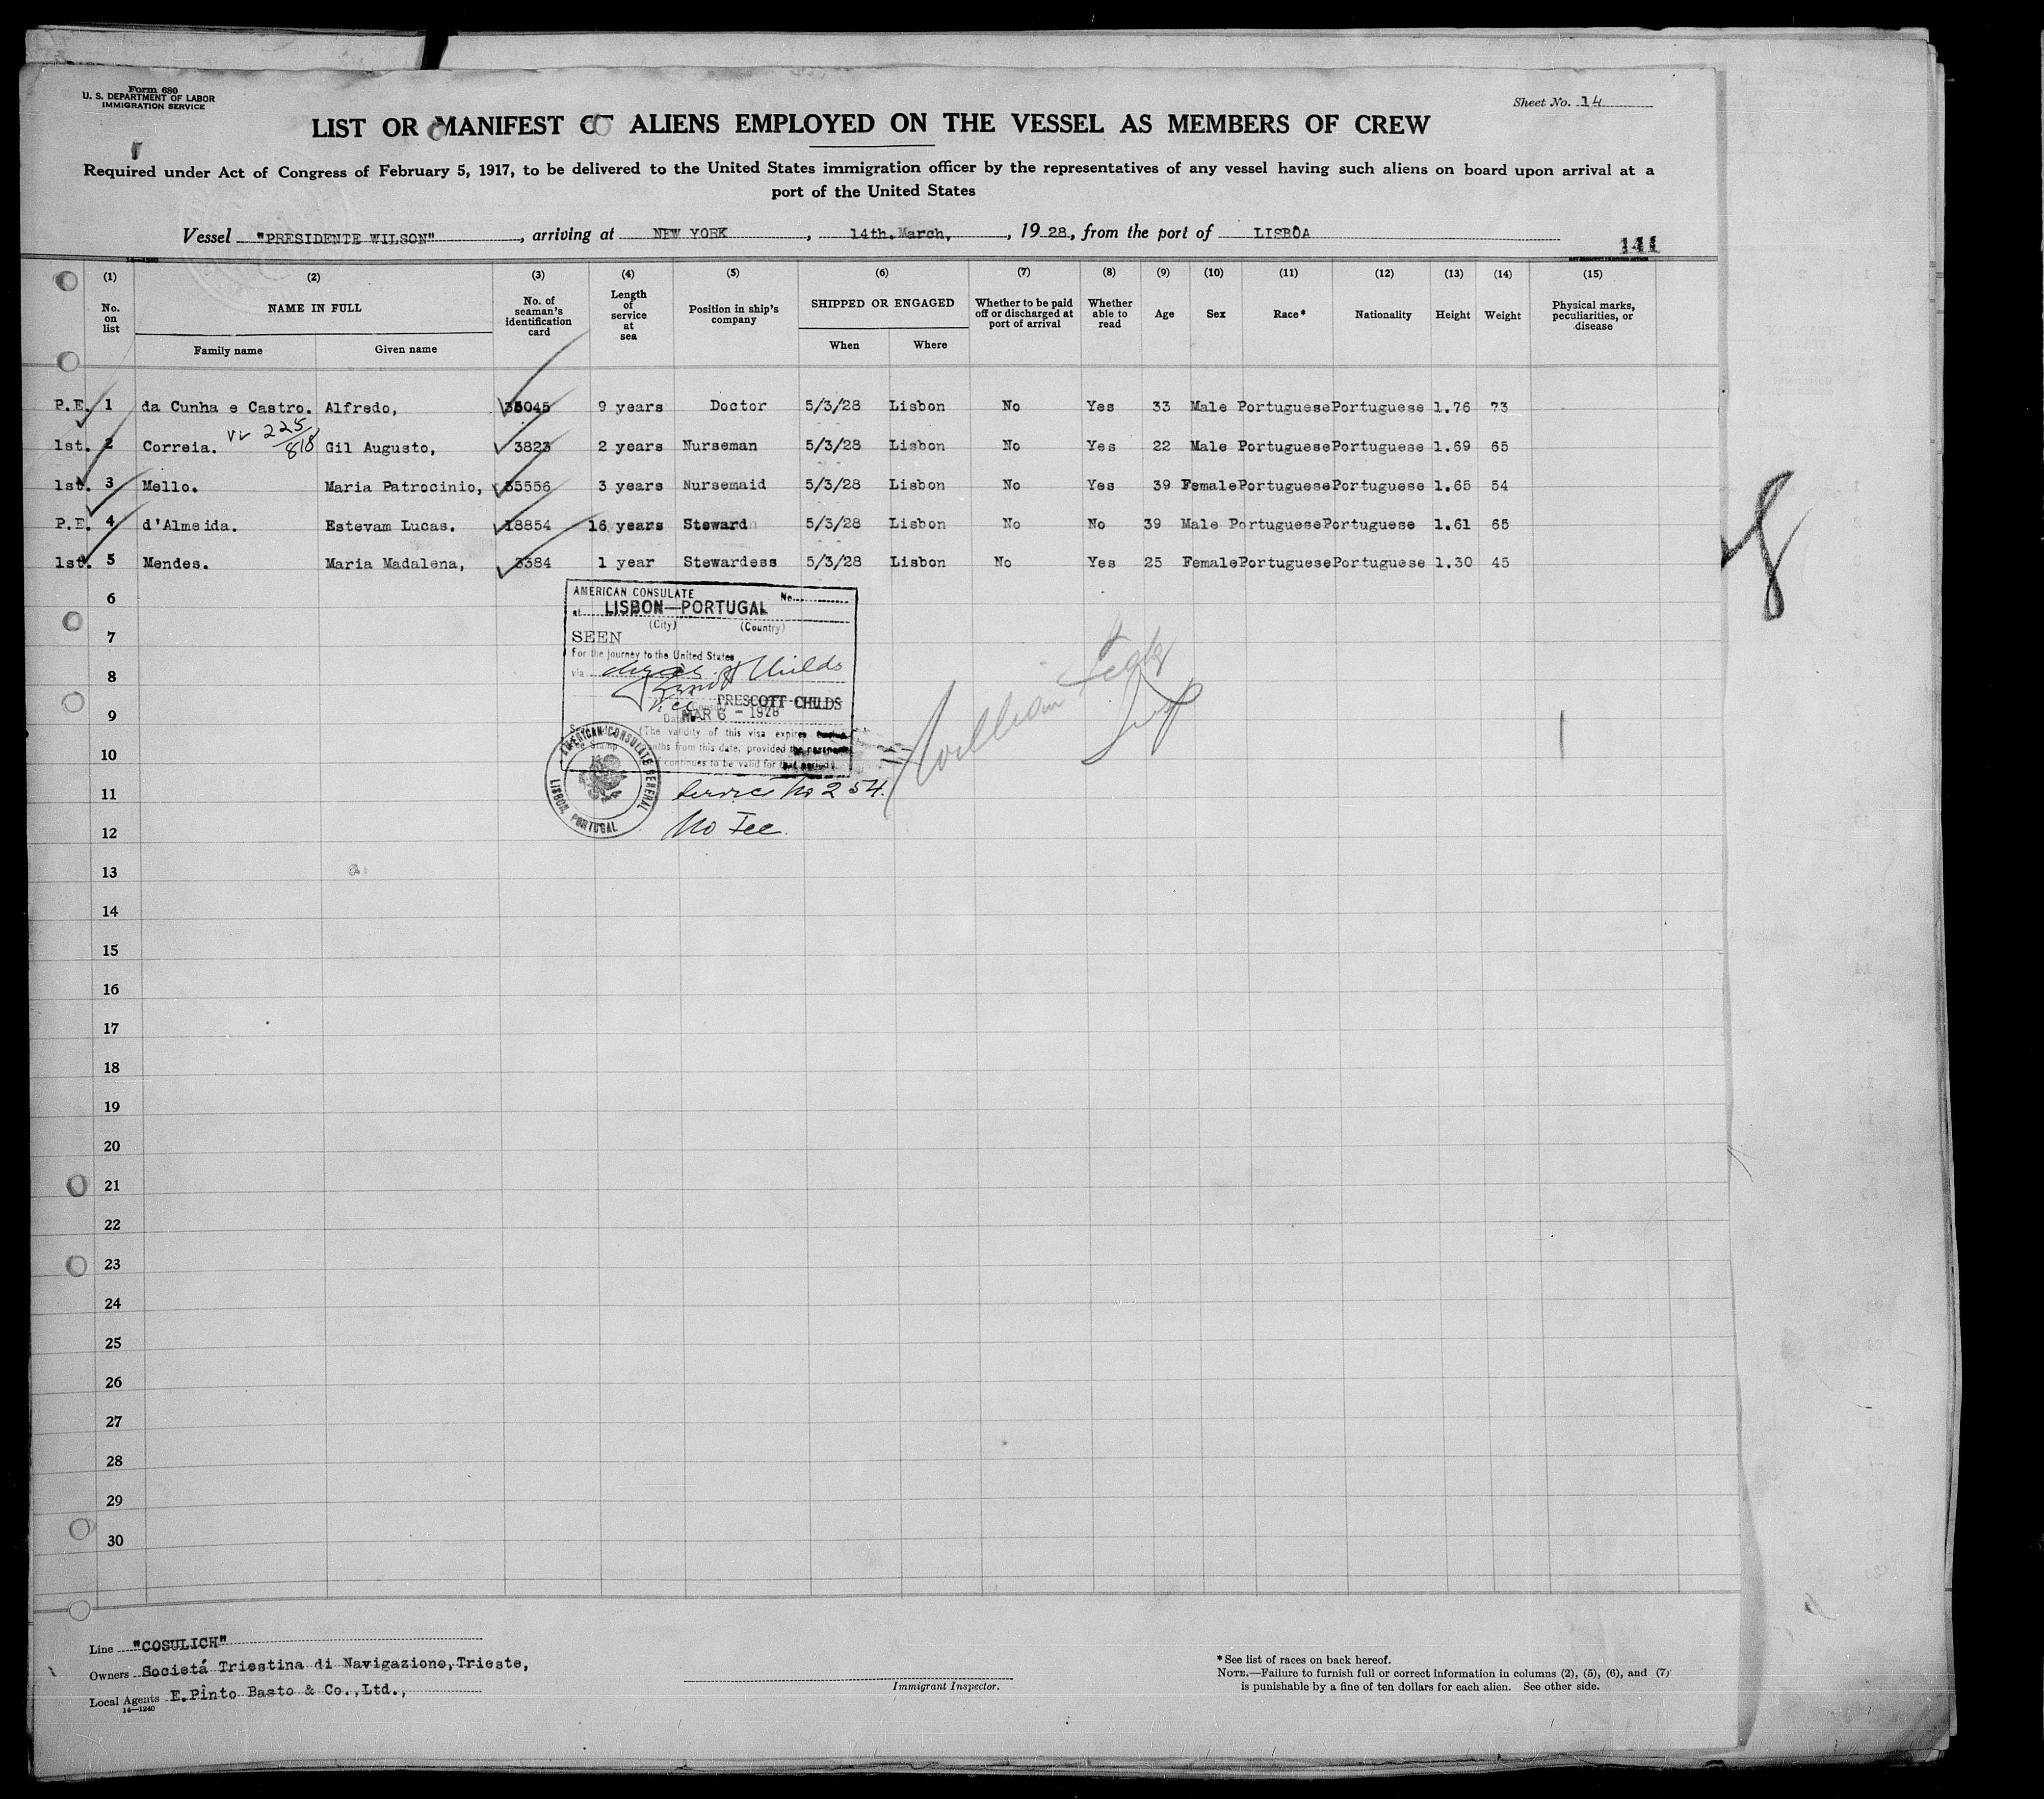 Form 680
U. S. DEPARTMENT OF LABOR
IMMIGRATION SERVICE
Sheet No. 14
LIST OR MANIFEST OF ALIENS EMPLOYED ON THE VESSEL AS MEMBERS OF CREW
Required under Act of Congress of February 5, 1917, to be delivered to the United States immigration officer by the representatives of any vessel having such aliens on board upon arrival at a
port of the United States
Vessel "PRESIDENTE WILSON", arriving at NEW YORK, 14th. March, 1928, from the port of LISBÔA
141
14—1240
(1) (2) (3) (4) (5) (6) (7) (8) (9) (10) (11) (12) (13) (14) (15)
No. on list
NAME IN FULL
Family name
Given name
No. of seaman's identification card
Length of service at sea
Position in ship's company
SHIPPED OR ENGAGED
When
Where
Whether to be paid off or discharged at port of arrival
Whether able to read
Age
Sex
Race*
Nationality
Height
Weight
Physical marks, peculiarities, or disease
P.E. 1 da Cunha e Castro. Alfredo, 35045 9 years Doctor 5/3/28 Lisbon No Yes 33 Male Portuguese Portuguese 1.76 73
225/818
1st. 2 Correia. Gil Augusto, 3823 2 years Nurseman 5/3/28 Lisbon No Yes 22 Male Portuguese Portuguese 1.69 65
1st. 3 Mello. Maria Patrocinio, 35556 3 years Nursemaid 5/3/28 Lisbon No Yes 39 Female Portuguese Portuguese 1.65 54
P.E. 4 d'Almeida. Estevam Lucas. 18854 16 years Steward 5/3/28 Lisbon No No 39 Male Portuguese Portuguese 1.61 65
1st. 5 Mendes. Maria Madalena, 3384 1 year Stewardess 5/3/28 Lisbon No Yes 25 Female Portuguese Portuguese 1.30 45
6
7
8
9
10
11
12
13
14
15
16
17
18
19
20
21
22
23
24
25
26
27
28
29
30
AMERICAN CONSULATE No.
at LISBON—PORTUGAL
(City) (Country)
SEEN
For the journey to the United States
via direct
Prescott Childs
PRESCOTT CHILDS
Vice Consul
Date MAR 6 - 1928
(The validity of this visa expires
months from this date, provided the passport
continues to be valid for that period).
AMERICAN CONSULATE GENERAL
LISBON, PORTUGAL
Service No 254.
No Fee.
William
Line "COSULICH"
Owners Societá Triestina di Navigazione, Trieste,
Local Agents E. Pinto Basto & Co., Ltd.,
14—1240
Immigrant Inspector.
* See list of races on back hereof.
NOTE.—Failure to furnish full or correct information in columns (2), (5), (6), and (7)
is punishable by a fine of ten dollars for each alien. See other side.